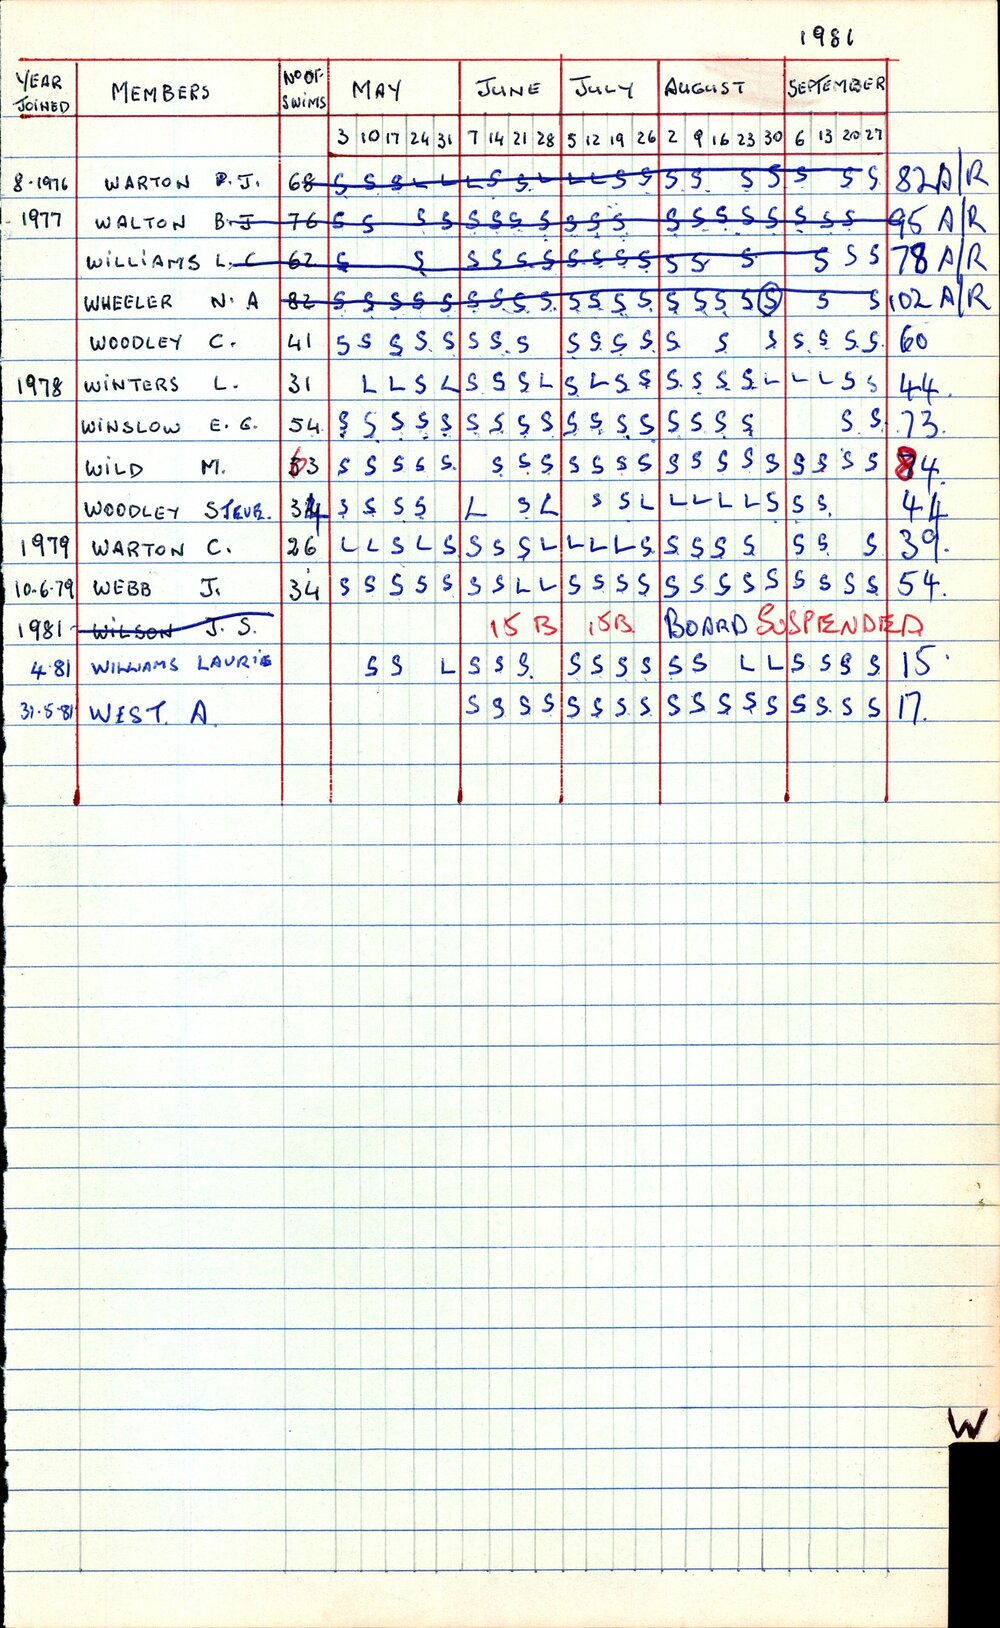 1981
YEAR JOINED MEMBERS NO OF SWIMS MAY JUNE JULY AUGUST SEPTEMBER
3 10 17 24 31 7 14 21 28 5 12 19 26 2 9 16 23 30 6 13 20 27
8-1976 WARTON P.J. 68 S S S L L L S S L L L S S S S S S S S S 82 A/R
1977 WALTON B.J 76 S S S S S S S S S S S S S S S S S S S 95 A/R
WILLIAMS L.C 62 S S S S S S S S S S S S S S S S 78 A/R
WHEELER N.A 82 S S S S S S S S S S S S S S S S S S S S 102 A/R
WOODLEY C. 41 S S S S S S S S S S S S S S S S S S S 60
1978 WINTERS L. 31 L L S L S S S L S L S S S S S S L L L S S 44.
WINSLOW E.G. 54 S S S S S S S S S S S S S S S S S S S 73.
WILD M. 63 S S S S S S S S S S S S S S S S S S S S S 84.
WOODLEY STEVE. 34 S S S S L S L S S L L L L L S S S 44
1979 WARTON C. 26 L L S L S S S S L L L L S S S S S S S S 39.
10-6-79 WEBB J. 34 S S S S S S S L L S S S S S S S S S S S S S 54.
1981 WILSON J.S. 15 B 15B BOARD SUSPENDED
4.81 WILLIAMS LAURIE S S L S S S S S S S S S L L S S S S 15
31-5-81 WEST. A. S S S S S S S S S S S S S S S S S 17.
W